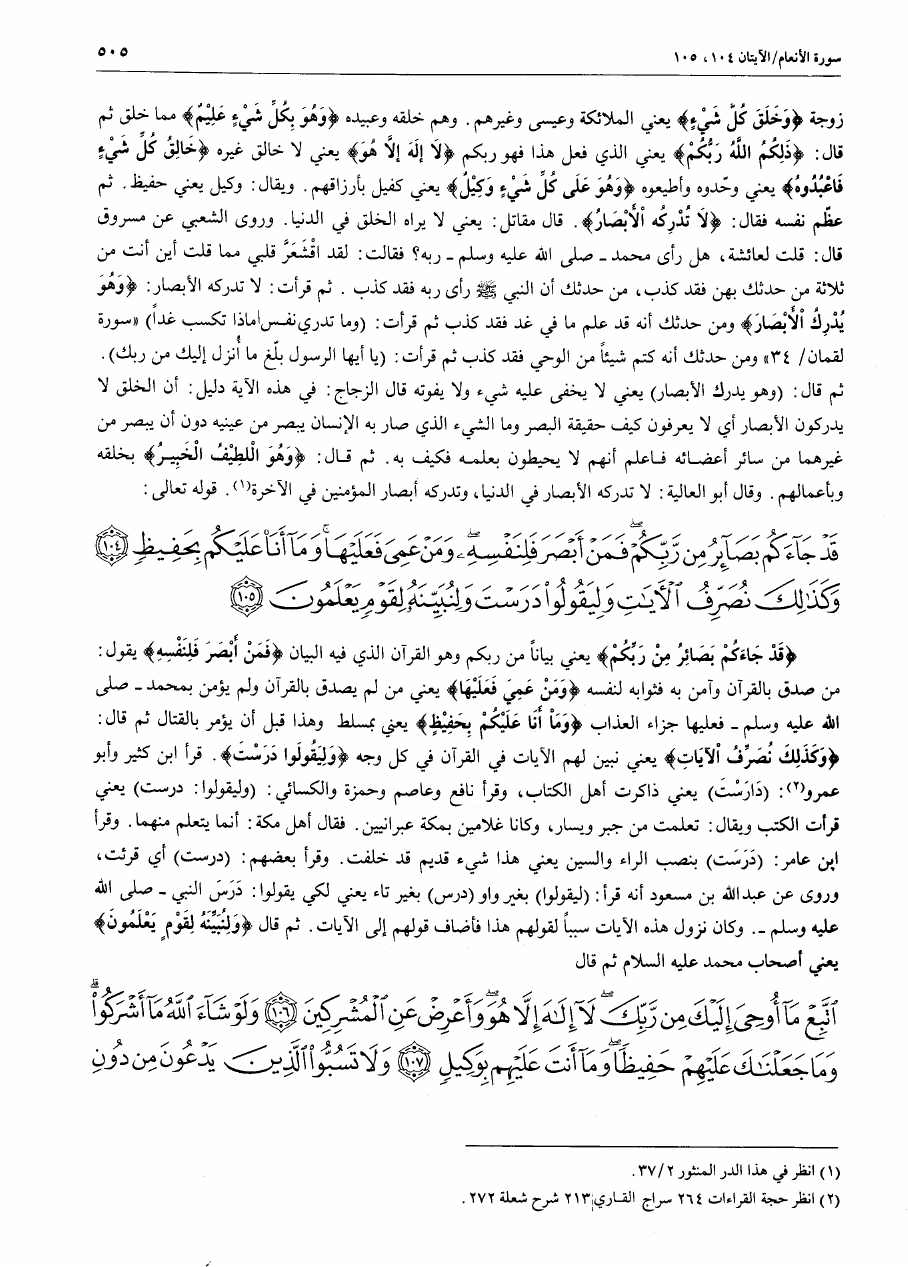 سورة الأنعام/الآيتان ١٠٤، ١٠٥
٥٠٥
زوجة ﴿وَخَلَقَ كُلَّ شَيْءٍ﴾ يعني الملائكة وعيسى وغيرهم. وهم خلقه وعبيده ﴿وَهُوَ بِكُلِّ شَيْءٍ عَلِيْمٌ﴾ مما خلق ثم
قال: ﴿ذَلِكُمُ اللَّهُ رَبُّكُمْ﴾ يعني الذي فعل هذا فهو ربكم ﴿لَا إلَهَ إلَّا هُوَ﴾ يعني لا خالق غيره ﴿خَالِقُ كُلِّ شَيْءٍ
فَاعْبُدُوهُ﴾ يعني وحّدوه وأطيعوه ﴿وَهُوَ عَلَى كُلِّ شَيْءٍ وَكِيْلٌ﴾ يعني كفيل بأرزاقهم. ويقال: وكيل يعني حفيظ. ثم
عظّم نفسه فقال: ﴿لَا تُدْرِكُه الْأَبْصَارُ﴾. قال مقاتل: يعني لا يراه الخلق في الدنيا. وروى الشعبي عن مسروق
قال: قلت لعائشة، هل رأى محمد ـ صلى الله عليه وسلم ـ ربه؟ فقالت: لقد اقْشَعَرَّ قلبي مما قلت أين أنت من
ثلاثة من حدثك بهن فقد كذب، من حدثك أن النبي ﷺ رأى ربه فقد كذب. ثم قرأت: لا تدركه الأبصار: ﴿وَهُوَ
يُدْرِكُ الْأَبْصَارَ﴾ ومن حدثك أنه قد علم ما في غد فقد كذب ثم قرأت: (وما تدري نفس ماذا تكسب غداً) «سورة
لقمان/ ٣٤» ومن حدثك أنه كتم شيئاً من الوحي فقد كذب ثم قرأت: (يا أيها الرسول بلّغ ما أُنزل إليك من ربك).
ثم قال: (وهو يدرك الأبصار) يعني لا يخفى عليه شيء ولا يفوته قال الزجاج: في هذه الآية دليل: أن الخلق لا
يدركون الأبصار أي لا يعرفون كيف حقيقة البصر وما الشيء الذي صار به الإنسان يبصر من عينيه دون أن يبصر من
غيرهما من سائر أعضائه فاعلم أنهم لا يحيطون بعلمه فكيف به. ثم قال: ﴿وَهُوَ اللَّطِيْفُ الْخَبِيرُ﴾ بخلقه
وبأعمالهم. وقال أبو العالية: لا تدركه الأبصار في الدنيا، وتدركه أبصار المؤمنين في الآخرة(١). قوله تعالى:
قَدْ جَاءَكُم بَصَائِرُ مِن رَّبِّكُمْ فَمَنْ أَبْصَرَ فَلِنَفْسِهِ وَمَنْ عَمِيَ فَعَلَيْهَا وَمَا أَنَا عَلَيْكُم بِحَفِيظٍ ١٠٤
وَكَذَٰلِكَ نُصَرِّفُ الْآيَاتِ وَلِيَقُولُوا دَرَسْتَ وَلِنُبَيِّنَهُ لِقَوْمٍ يَعْلَمُونَ ١٠٥
﴿قَدْ جَاءَكُمْ بَصَائِرُ مِنْ رَبِّكُمْ﴾ يعني بياناً من ربكم وهو القرآن الذي فيه البيان ﴿فَمَنْ أَبْصَرَ فَلِنَفْسِهِ﴾ يقول:
من صدق بالقرآن وآمن به فثوابه لنفسه ﴿وَمَنْ عَمِيَ فَعَلَيْهَا﴾ يعني من لم يصدق بالقرآن ولم يؤمن بمحمد ـ صلى
الله عليه وسلم ـ فعليها جزاء العذاب ﴿وَمَا أَنَا عَلَيْكُمْ بِحَفِيْظٍ﴾ يعني بمسلط وهذا قبل أن يؤمر بالقتال ثم قال:
﴿وَكَذَلِكَ نُصَرِّفُ الآيَاتِ﴾ يعني نبين لهم الآيات في القرآن في كل وجه ﴿وَلِيَقُولُوا دَرَسْتَ﴾. قرأ ابن كثير وأبو
عمرو(٢): (دَارَسْتَ) يعني ذاكرت أهل الكتاب، وقرأ نافع وعاصم وحمزة والكسائي: (وليقولوا: درست) يعني
قرأت الكتب ويقال: تعلمت من جبر ويسار، وكانا غلامين بمكة عبرانيين. فقال أهل مكة: أنما يتعلم منهما. وقرأ
ابن عامر: (دَرَسَت) بنصب الراء والسين يعني هذا شيء قديم قد خلفت. وقرأ بعضهم: (درست) أي قرئت،
وروى عن عبدالله بن مسعود أنه قرأ: (ليقولوا) بغير واو (درس) بغير تاء يعني لكي يقولوا: دَرَسَ النبي ـ صلى الله
عليه وسلم ـ. وكان نزول هذه الآيات سبباً لقولهم هذا فأضاف قولهم إلى الآيات. ثم قال ﴿وَلِنُبَيِّنَهُ لِقَوْمٍ يَعْلَمُونَ﴾
يعني أصحاب محمد عليه السلام ثم قال
اتَّبِعْ مَا أُوحِيَ إِلَيْكَ مِن رَّبِّكَ لَا إِلَٰهَ إِلَّا هُوَ وَأَعْرِضْ عَنِ الْمُشْرِكِينَ ١٠٦ وَلَوْ شَاءَ اللَّهُ مَا أَشْرَكُوا
وَمَا جَعَلْنَاكَ عَلَيْهِمْ حَفِيظًا وَمَا أَنتَ عَلَيْهِم بِوَكِيلٍ ١٠٧ وَلَا تَسُبُّوا الَّذِينَ يَدْعُونَ مِن دُونِ
(١) انظر في هذا الدر المنثور ٣٧/٢.
(٢) انظر حجة القراءات ٢٦٤ سراج القاري ٢١٣ شرح شعلة ٢٧٢.